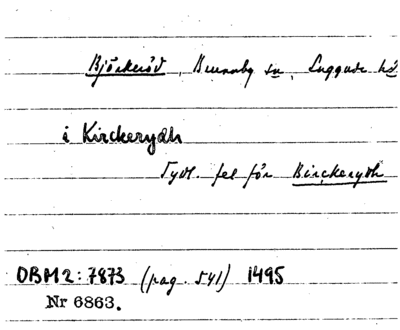 Björkeröd, Brunnby sn, Luggude hd
i Kirckerydh
Tydl. fel för Birckerydh
DBM 2: 7873 (pag. 541) 1495
Nr 6863.